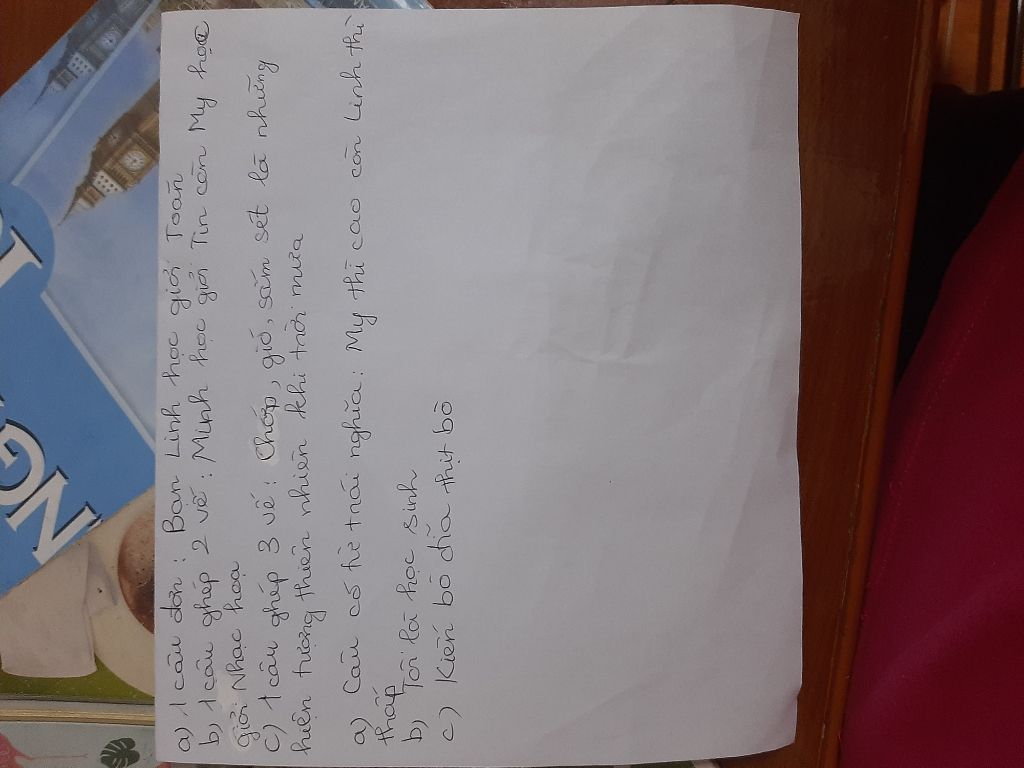 a) 1 câu đơn : Bạn Linh học giỏi Toán
b) 1 câu ghép 2 vế : Minh học giỏi Tin còn My học
giỏi Nhạc hoạ
c) 1 câu ghép 3 vế : Chớp, gió, sấm sét là những
hiện tượng thiên nhiên khi trời mưa
a) Câu có từ trái nghĩa : My thì cao còn Linh thì
thấp
b) Tôi là học sinh
c) Kiến bò đĩa thịt bò